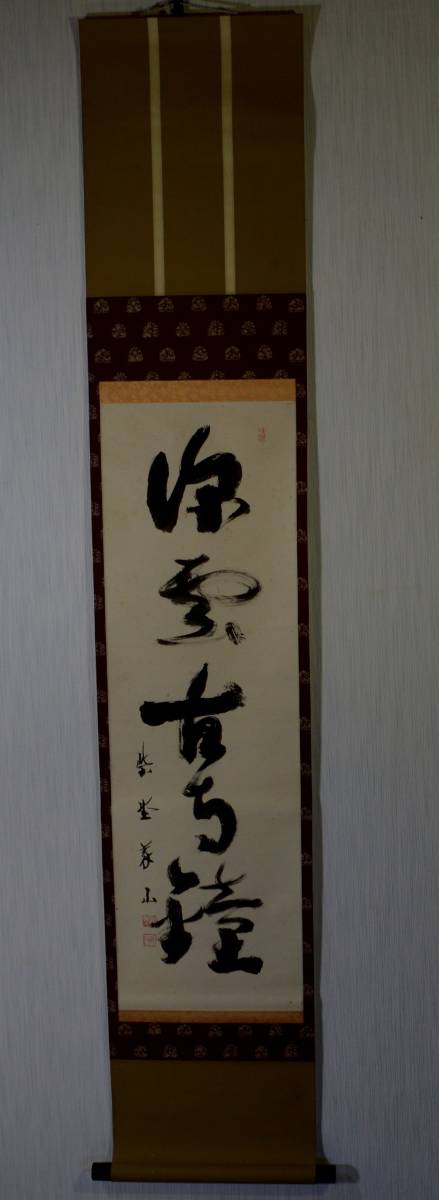 深雲古寺鐘
紫野義山